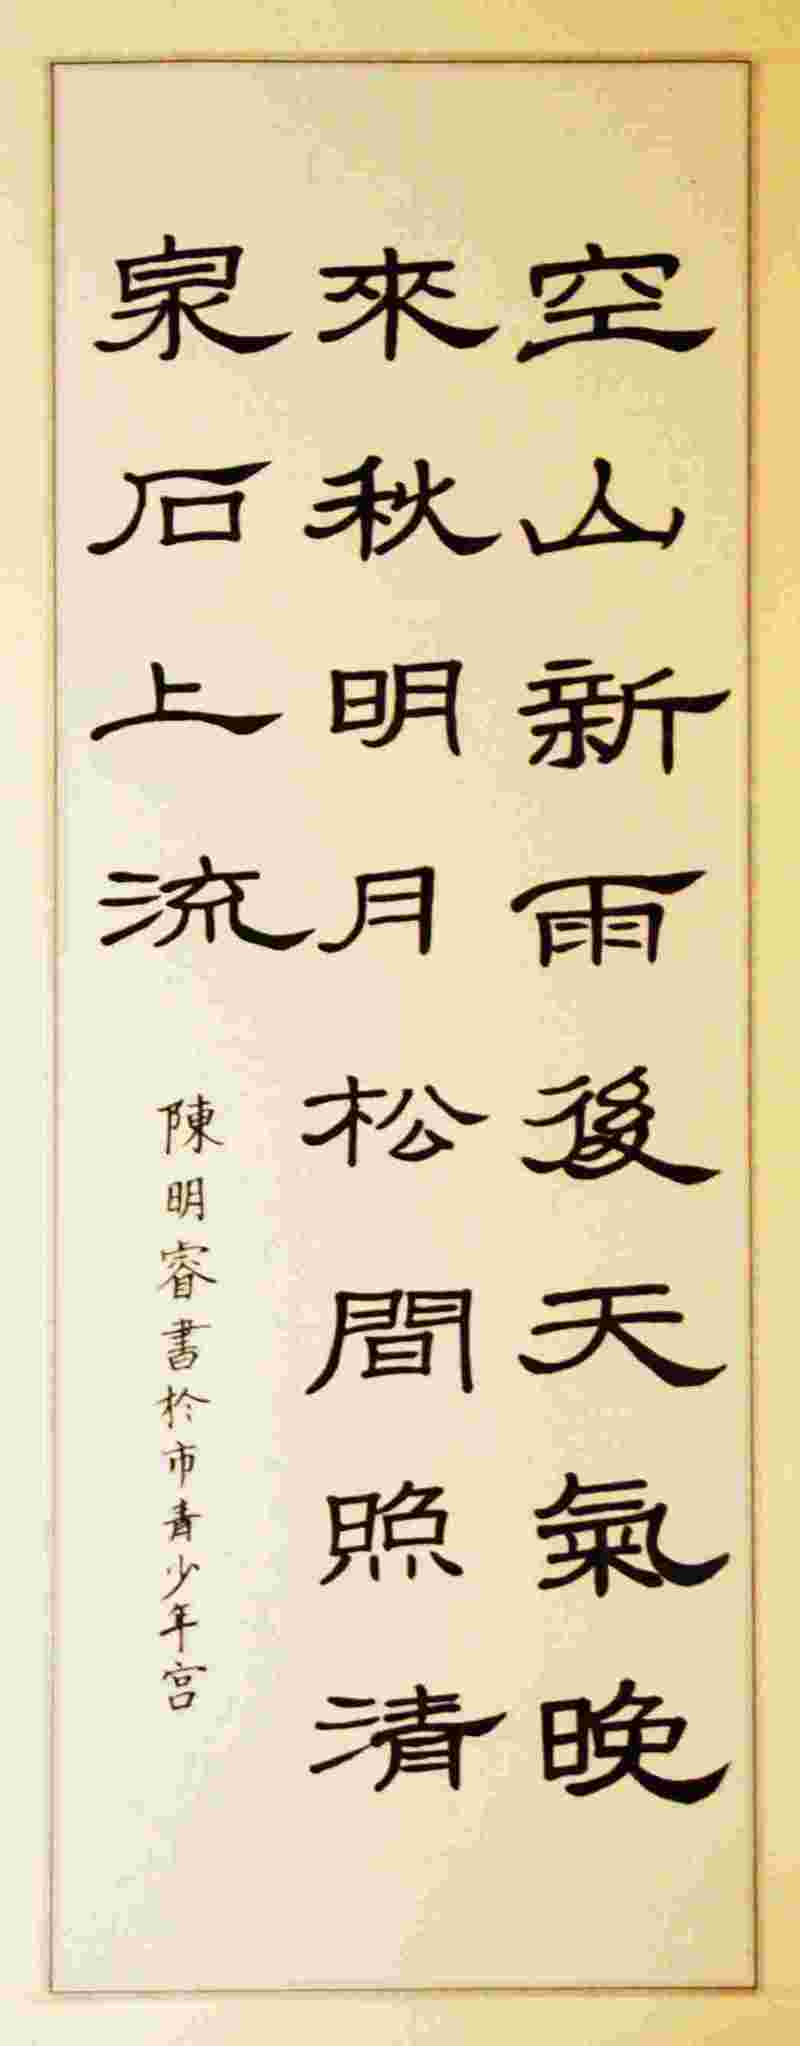 空山新雨後天氣晚
來秋明月松間照清
泉石上流
陳明睿書於市青少年宮